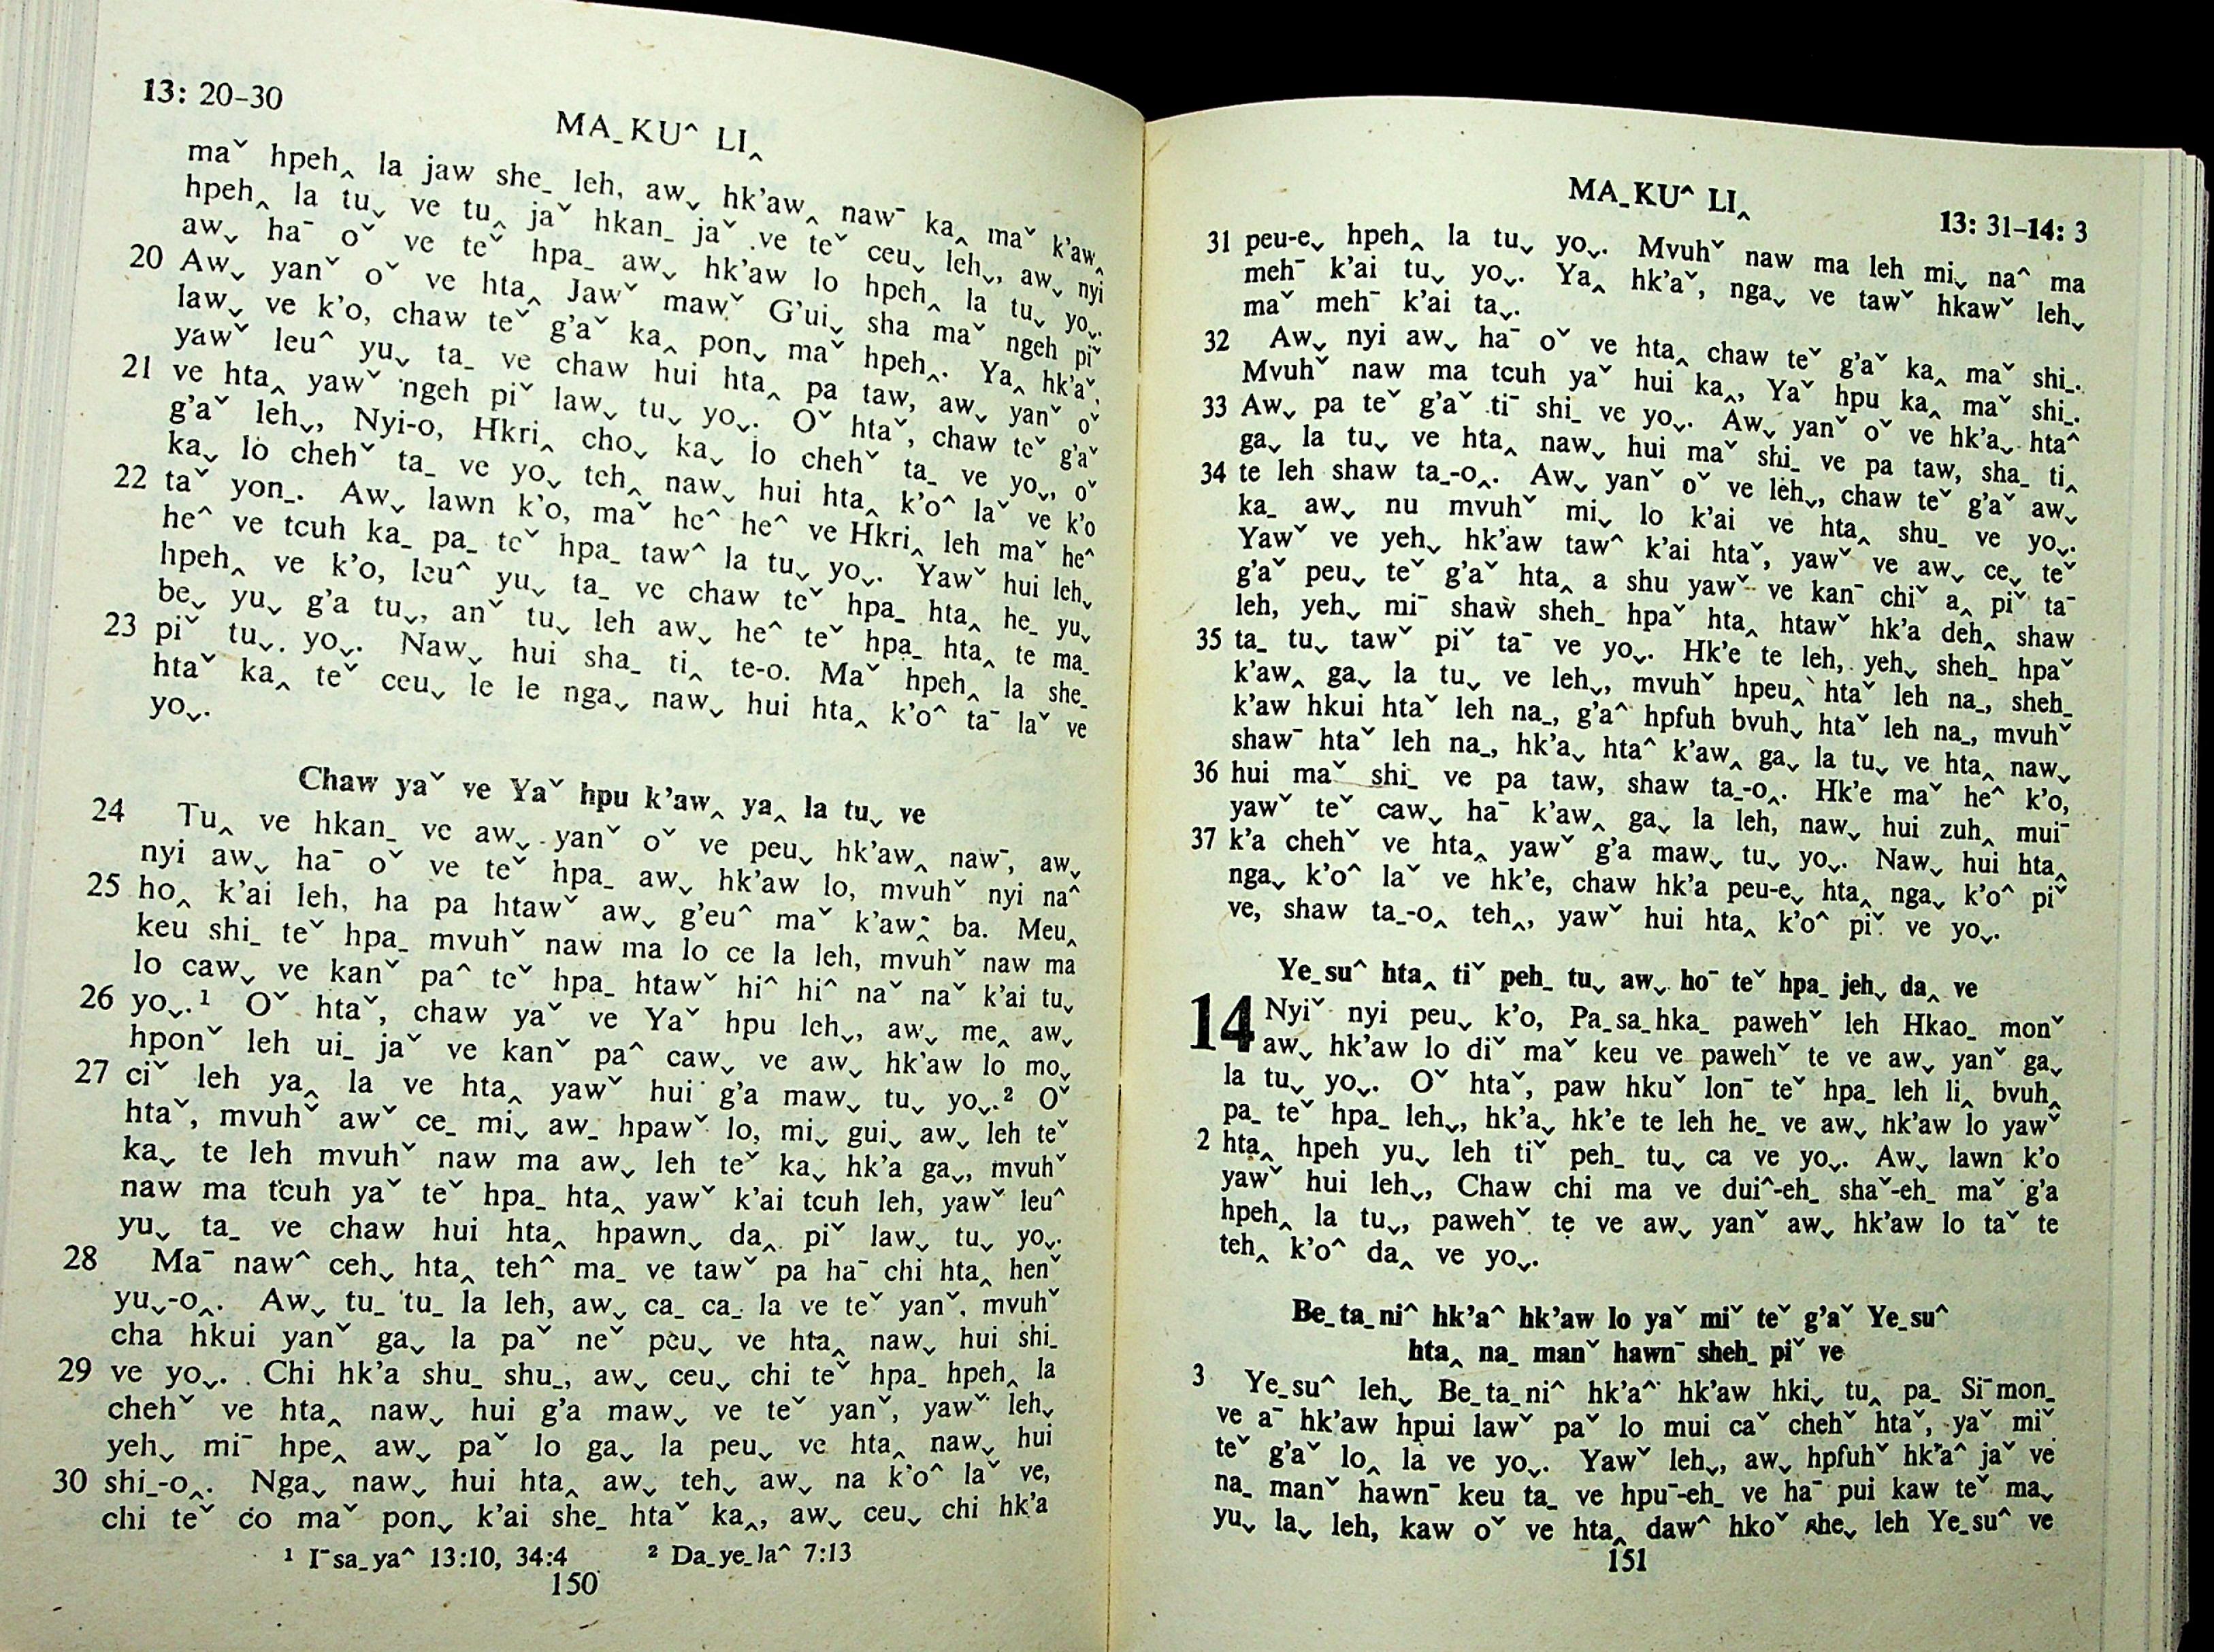 13: 20–30
MA_KUˆ LI‸
maˇ hpeh‸ la jaw she_ leh, awˬ hk’aw‸ naw¯ ka‸ maˇ k’aw‸
hpeh‸ la tuˬ ve tu‸ jaˇ hkan_ jaˇ ve teˇ ceuˬ lehˬ, awˬ nyi
awˬ ha¯ oˇ ve teˇ hpa_ awˬ hk’aw lo hpeh‸ la tuˬ yoˬ.
20 Awˬ yanˇ oˇ ve hta‸ Jawˇ mawˇ G’uiˬ sha maˇ ngeh piˇ
lawˬ ve k’o, chaw teˇ g’aˇ ka‸ ponˬ maˇ hpeh‸. Ya‸ hk’aˇ,
yawˇ leuˆ yuˬ ta_ ve chaw hui hta‸ pa taw, awˬ yanˇ oˇ
21 ve hta‸ yawˇ ngeh piˇ lawˬ tuˬ yoˬ. Oˇ htaˇ, chaw teˇ g’aˇ
g’aˇ lehˬ, Nyi-o, Hkri‸ choˬ kaˬ lo chehˇ ta_ ve yoˬ, oˇ
kaˬ lo chehˇ ta_ ve yoˬ teh‸ nawˬ hui hta‸ k’oˆ laˇ ve k’o
22 taˇ yon_. Awˬ lawn k’o, maˇ heˆ heˆ ve Hkri‸ leh maˇ heˆ
heˆ ve tcuh ka_ pa_ teˇ hpa_ tawˆ la tuˬ yoˬ. Yawˇ hui lehˬ
hpeh‸ ve k’o, leuˆ yuˬ ta_ ve chaw teˇ hpa_ hta‸ he_ yuˬ
beˬ yuˬ g’a tuˬ, anˇ tuˬ leh awˬ heˆ teˇ hpa_ hta‸ te ma_
23 piˇ tuˬ yoˬ. Nawˬ hui sha_ ti‸ te-o. Maˇ hpeh‸ la she_
htaˇ ka‸ teˇ ceuˬ le le ngaˬ nawˬ hui hta‸ k’oˆ ta¯ laˇ ve
yoˬ.
Chaw yaˇ ve Yaˇ hpu k’aw‸ ya‸ la tuˬ ve
24 Tu‸ ve hkan_ ve awˬ yanˇ oˇ ve peuˬ hk’aw‸ naw¯, awˬ
nyi awˬ ha¯ oˇ ve teˇ hpa_ awˬ hk’aw lo, mvuhˇ nyi naˆ
25 ho‸ k’ai leh, ha pa htawˇ awˬ g’euˆ maˇ k’aw‸ ba. Meu‸
keu shi_ teˇ hpa_ mvuhˇ naw ma lo ce la leh, mvuhˇ naw ma
lo cawˬ ve kanˇ paˆ teˇ hpa_ htawˇ hiˆ hiˆ naˇ naˇ k’ai tuˬ
26 yoˬ.¹ Oˇ htaˇ, chaw yaˇ ve Yaˇ hpu lehˬ, awˬ me‸ awˬ
hponˇ leh ui_ jaˇ ve kanˇ paˆ cawˬ ve awˬ hk’aw lo moˬ
27 ciˇ leh ya‸ la ve hta‸ yawˇ hui g’a mawˬ tuˬ yoˬ.² Oˇ
htaˇ, mvuhˇ awˇ ce_ miˬ aw_ hpawˇ lo, miˬ guiˬ awˬ leh teˇ
kaˬ te leh mvuhˇ naw ma awˬ leh teˇ kaˬ hk’a gaˬ, mvuhˇ
naw ma tcuh yaˇ teˇ hpa_ hta‸ yawˇ k’ai tcuh leh, yawˇ leuˆ
yuˬ ta_ ve chaw hui hta‸ hpawnˬ da‸ piˇ lawˬ tuˬ yoˬ.
28 Ma¯ nawˆ cehˬ hta‸ tehˆ ma_ ve tawˇ pa ha¯ chi hta‸ henˇ
yuˬ-o‸. Awˬ tu_ tu_ la leh, awˬ ca_ ca_ la ve teˇ yanˇ, mvuhˇ
cha hkui yanˇ gaˬ la paˇ neˇ peuˬ ve hta‸ nawˬ hui shi_
29 ve yoˬ. Chi hk’a shu_ shu_, awˬ ceuˬ chi teˇ hpa_ hpeh‸ la
chehˇ ve hta‸ nawˬ hui g’a mawˬ ve teˇ yanˇ, yawˇ lehˬ
yehˬ mi¯ hpe‸ awˬ paˇ lo gaˬ la peuˬ ve hta‸ nawˬ hui
30 shi_-o‸. Ngaˬ nawˬ hui hta‸ awˬ tehˬ awˬ na k’oˆ laˇ ve,
chi teˇ co maˇ ponˬ k’ai she_ htaˇ ka‸, awˬ ceuˬ chi hk’a
¹ I¯sa_yaˆ 13:10, 34:4 ² Da_ye_laˆ 7:13
150
MA_KUˆ LI‸
13: 31–14: 3
31 peu-eˬ hpeh‸ la tuˬ yoˬ. Mvuhˇ naw ma leh miˬ naˆ ma
meh¯ k’ai tuˬ yoˬ. Ya‸ hk’aˇ, ngaˬ ve tawˇ hkawˇ lehˬ
maˇ meh¯ k’ai taˬ.
32 Awˬ nyi awˬ ha¯ oˇ ve hta‸ chaw teˇ g’aˇ ka‸ maˇ shi_.
Mvuhˇ naw ma tcuh yaˇ hui ka‸, Yaˇ hpu ka‸ maˇ shi_.
33 Awˬ pa teˇ g’aˇ ti¯ shi_ ve yoˬ. Awˬ yanˇ oˇ ve hk’aˬ htaˆ
gaˬ la tuˬ ve hta‸ nawˬ hui maˇ shi_ ve pa taw, sha_ ti‸
34 te leh shaw ta_-o‸. Awˬ yanˇ oˇ ve lehˬ, chaw teˇ g’aˇ awˬ
ka_ awˬ nu mvuhˇ miˬ lo k’ai ve hta‸ shu_ ve yoˬ.
Yawˇ ve yehˬ hk’aw tawˆ k’ai htaˇ, yawˇ ve awˬ ceˬ teˇ
g’aˇ peuˬ teˇ g’aˇ hta‸ a shu yawˇ ve kan¯ chiˇ a‸ piˇ ta¯
leh, yehˬ mi¯ shaw sheh_ hpaˇ hta‸ htawˇ hk’a deh‸ shaw
35 ta_ tuˬ tawˇ piˇ ta¯ ve yoˬ. Hk’e te leh, yehˬ sheh_ hpaˇ
k’aw‸ gaˬ la tuˬ ve lehˬ, mvuhˇ hpeu‸ htaˇ leh na_, sheh_
k’aw hkui htaˇ leh na_, g’aˆ hpfuh bvuhˬ htaˇ leh na_, mvuhˇ
shaw¯ htaˇ leh na_, hk’aˬ htaˆ k’aw‸ gaˬ la tuˬ ve hta‸ nawˬ
36 hui maˇ shi_ ve pa taw, shaw ta_-o‸. Hk’e maˇ heˆ k’o,
yawˇ teˇ cawˬ ha¯ k’aw‸ gaˬ la leh, nawˬ hui zuh‸ mui¯
37 k’a chehˇ ve hta‸ yawˇ g’a mawˬ tuˬ yoˬ. Nawˬ hui hta‸
ngaˬ k’oˆ laˇ ve hk’e, chaw hk’a peu-eˬ hta‸ ngaˬ k’oˆ piˇ
ve, shaw ta_-o‸ teh‸, yawˇ hui hta‸ k’oˆ piˇ ve yoˬ.
Ye_suˆ hta‸ tiˇ peh_ tuˬ awˬ ho¯ teˇ hpa_ jehˬ da‸ ve
14 Nyiˇ nyi peuˬ k’o, Pa_sa_hka_ pawehˇ leh Hkao_ monˇ
awˬ hk’aw lo diˇ maˇ keu ve pawehˇ te ve awˬ yanˇ gaˬ
la tuˬ yoˬ. Oˇ htaˇ, paw hkuˇ lon¯ teˇ hpa_ leh li‸ bvuh‸
pa_ teˇ hpa_ lehˬ, hk’aˬ hk’e te leh he_ ve awˬ hk’aw lo yawˇ
2 hta‸ hpeh yuˬ leh tiˇ peh_ tuˬ ca ve yoˬ. Awˬ lawn k’o
yawˇ hui lehˬ, Chaw chi ma ve duiˆ-eh_ shaˇ-eh_ maˇ g’a
hpeh‸ la tuˬ, pawehˇ te ve awˬ yanˇ awˬ hk’aw lo taˇ te
teh‸ k’oˆ da‸ ve yoˬ.
Be_ta_niˆ hk’aˆ hk’aw lo yaˇ miˇ teˇ g’aˇ Ye_suˆ
hta‸ na_ manˇ hawn¯ sheh_ piˇ ve
3 Ye_suˆ lehˬ Be_ta_niˆ hk’aˆ hk’aw hkiˬ tu‸ pa_ Si¯mon_
ve a¯ hk’aw hpui lawˇ paˇ lo mui caˇ chehˇ htaˇ, yaˇ miˇ
teˇ g’aˇ lo‸ la ve yoˬ. Yawˇ lehˬ, awˬ hpfuhˇ hk’aˆ jaˇ ve
na_ manˇ hawn¯ keu ta_ ve hpu¯-eh_ ve ha¯ pui kaw teˇ maˬ
yuˬ laˬ leh, kaw oˇ ve hta‸ dawˆ hkoˇ sheˬ leh Ye_suˆ ve
151